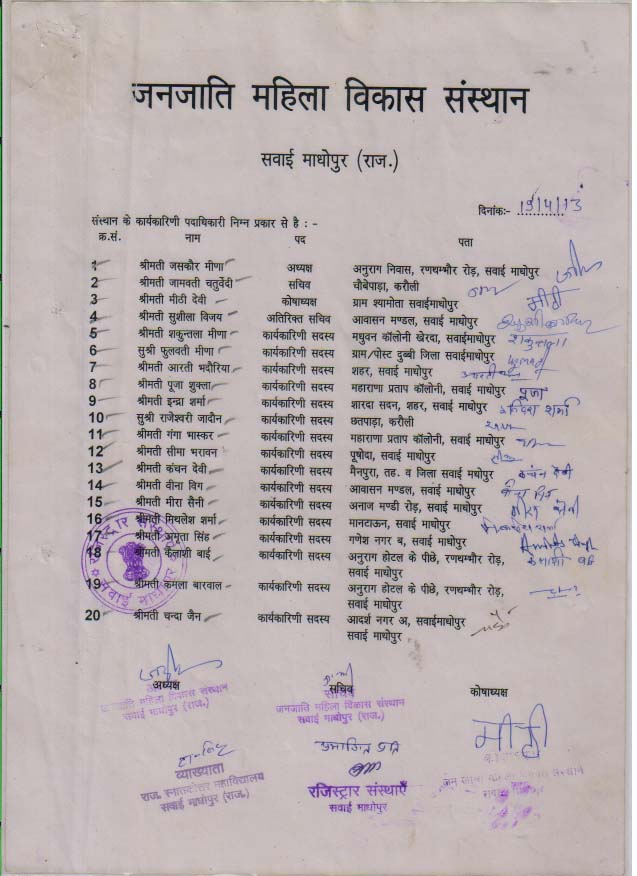 जनजाति महिला विकास संस्थान
सवाई माधोपुर (राज.)
दिनांक:- 19/4/13
संस्थान के कार्यकारिणी पदाधिकारी निम्न प्रकार से है : -
क्र.सं. नाम पद पता
1 श्रीमती जसकौर मीणा अध्यक्ष अनुराग निवास, रणथम्भौर रोड़, सवाई माधोपुर
2 श्रीमती जामवती चतुर्वेदी सचिव चौबेपाड़ा, करौली
3 श्रीमती मीठी देवी कोषाध्यक्ष ग्राम श्यामोता सवाईमाधोपुर मीठी
4 श्रीमती सुशीला विजय अतिरिक्त सचिव आवासन मण्डल, सवाई माधोपुर
5 श्रीमती शकुन्तला मीणा कार्यकारिणी सदस्य मधुवन कॉलोनी खेरदा, सवाईमाधोपुर शकुन्तला
6 सुश्री फुलवती मीणा कार्यकारिणी सदस्य ग्राम/पोस्ट दुब्बी जिला सवाईमाधोपुर
7 श्रीमती आरती भदौरिया कार्यकारिणी सदस्य शहर, सवाई माधोपुर
8 श्रीमती पूजा शुक्ला कार्यकारिणी सदस्य महाराणा प्रताप कॉलोनी, सवाई माधोपुर पूजा
9 श्रीमती इन्द्रा शर्मा कार्यकारिणी सदस्य शारदा सदन, शहर, सवाई माधोपुर शर्मा
10 सुश्री राजेश्वरी जादौन कार्यकारिणी सदस्य छतपाड़ा, करौली
11 श्रीमती गंगा भास्कर कार्यकारिणी सदस्य महाराणा प्रताप कॉलोनी, सवाई माधोपुर
12 श्रीमती सीमा भरावन कार्यकारिणी सदस्य पूषोदा, सवाई माधोपुर
13 श्रीमती कंचन देवी कार्यकारिणी सदस्य मैनपुरा, तह. व जिला सवाई माधोपुर कंचन देवी
14 श्रीमती वीना विग कार्यकारिणी सदस्य आवासन मण्डल, सवाई माधोपुर
15 श्रीमती मीरा सैनी कार्यकारिणी सदस्य अनाज मण्डी रोड़, सवाई माधोपुर मीरा सैनी
16 श्रीमती मिथलेश शर्मा कार्यकारिणी सदस्य मानटाऊन, सवाई माधोपुर
17 श्रीमती अमृता सिंह कार्यकारिणी सदस्य गणेश नगर ब, सवाई माधोपुर
18 श्रीमती कैलाशी बाई कार्यकारिणी सदस्य अनुराग होटल के पीछे, रणथम्भौर रोड़,
सवाई माधोपुर
19 श्रीमती कमला बारवाल कार्यकारिणी सदस्य अनुराग होटल के पीछे, रणथम्भौर रोड़,
सवाई माधोपुर
20 श्रीमती चन्दा जैन कार्यकारिणी सदस्य आदर्श नगर अ, सवाईमाधोपुर
सवाई माधोपुर
रजिस्ट्रार संस्थाएँ
सवाई माधोपुर
अध्यक्ष सचिव कोषाध्यक्ष
जनजाति महिला विकास संस्थान
सवाई माधोपुर (राज.)
सचिव
जनजाति महिला विकास संस्थान
सवाई माधोपुर (राज.)
मीठी
व्याख्याता
राज. स्नातकोत्तर महाविद्यालय
सवाई माधोपुर (राज.)
रजिस्ट्रार संस्थाएँ
सवाई माधोपुर